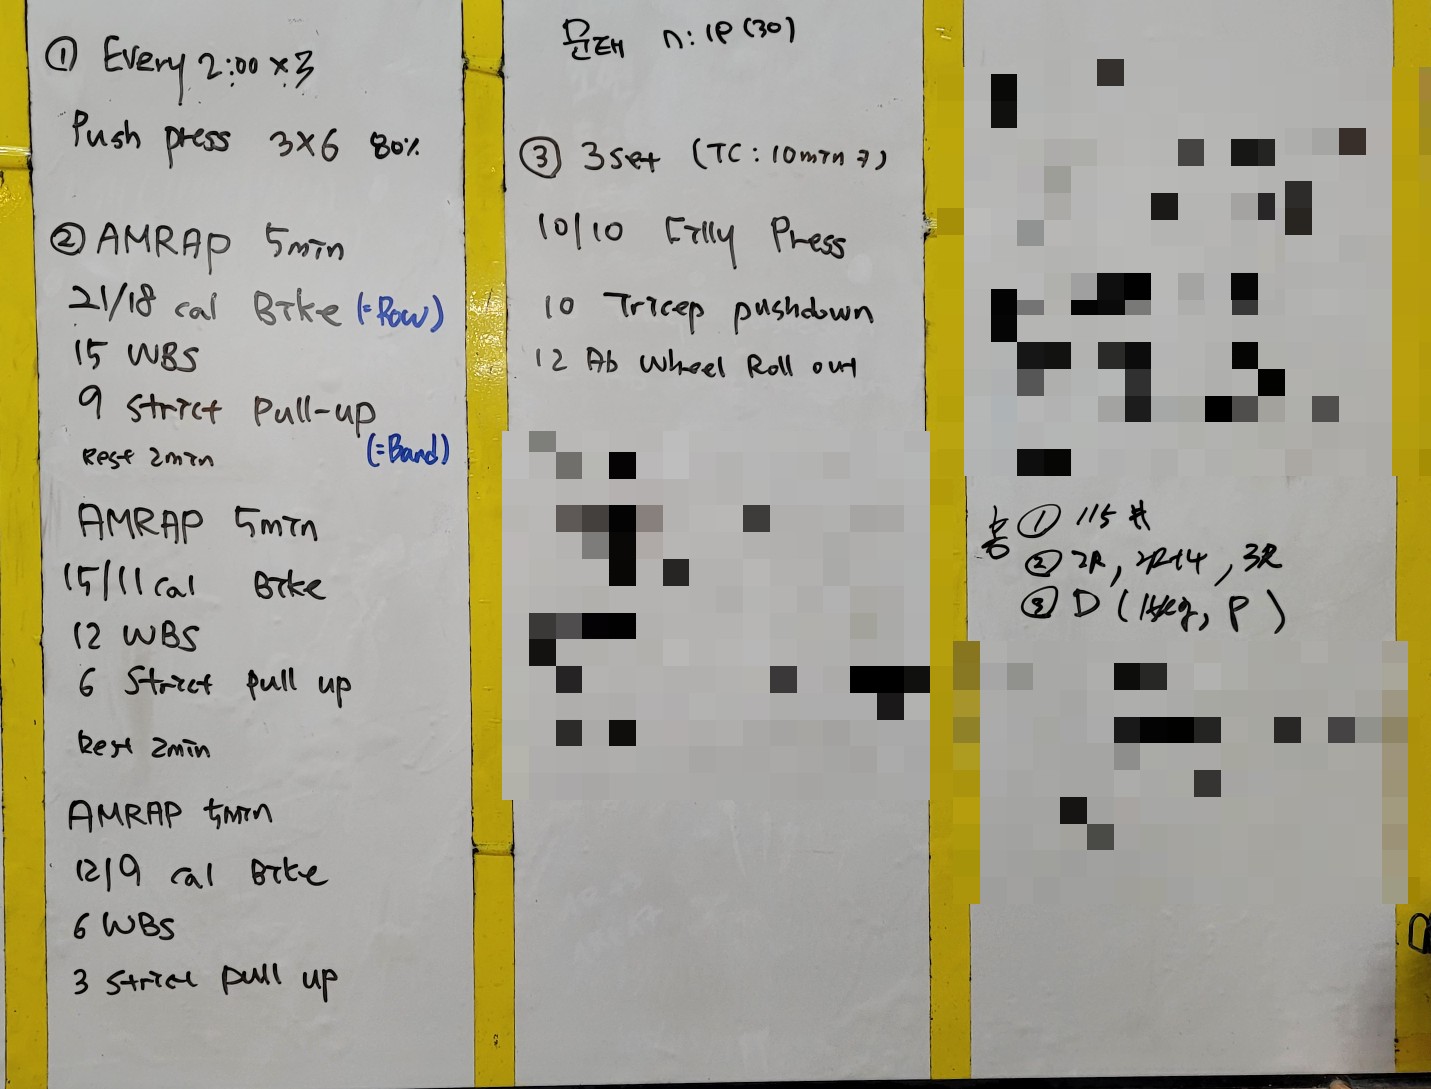 ① Every 2:00 x 3
Push press 3x6 80%
② AMRAP 5min
21/18 cal Bike (=Row)
15 WBS
9 strict Pull-up
(=Band)
Rest 2min
AMRAP 5min
15/11 cal Bike
12 WBS
6 Strict pull up
Rest 2min
AMRAP 5min
12/9 cal Bike
6 WBS
3 strict pull up
문태 n:1P (30)
③ 3set (TC: 10min
10/10 Filly Press
10 Tricep pushdown
12 Ab Wheel Roll out
① 115#
② 2R, 2R+4, 3R
③ D (15kg, P)